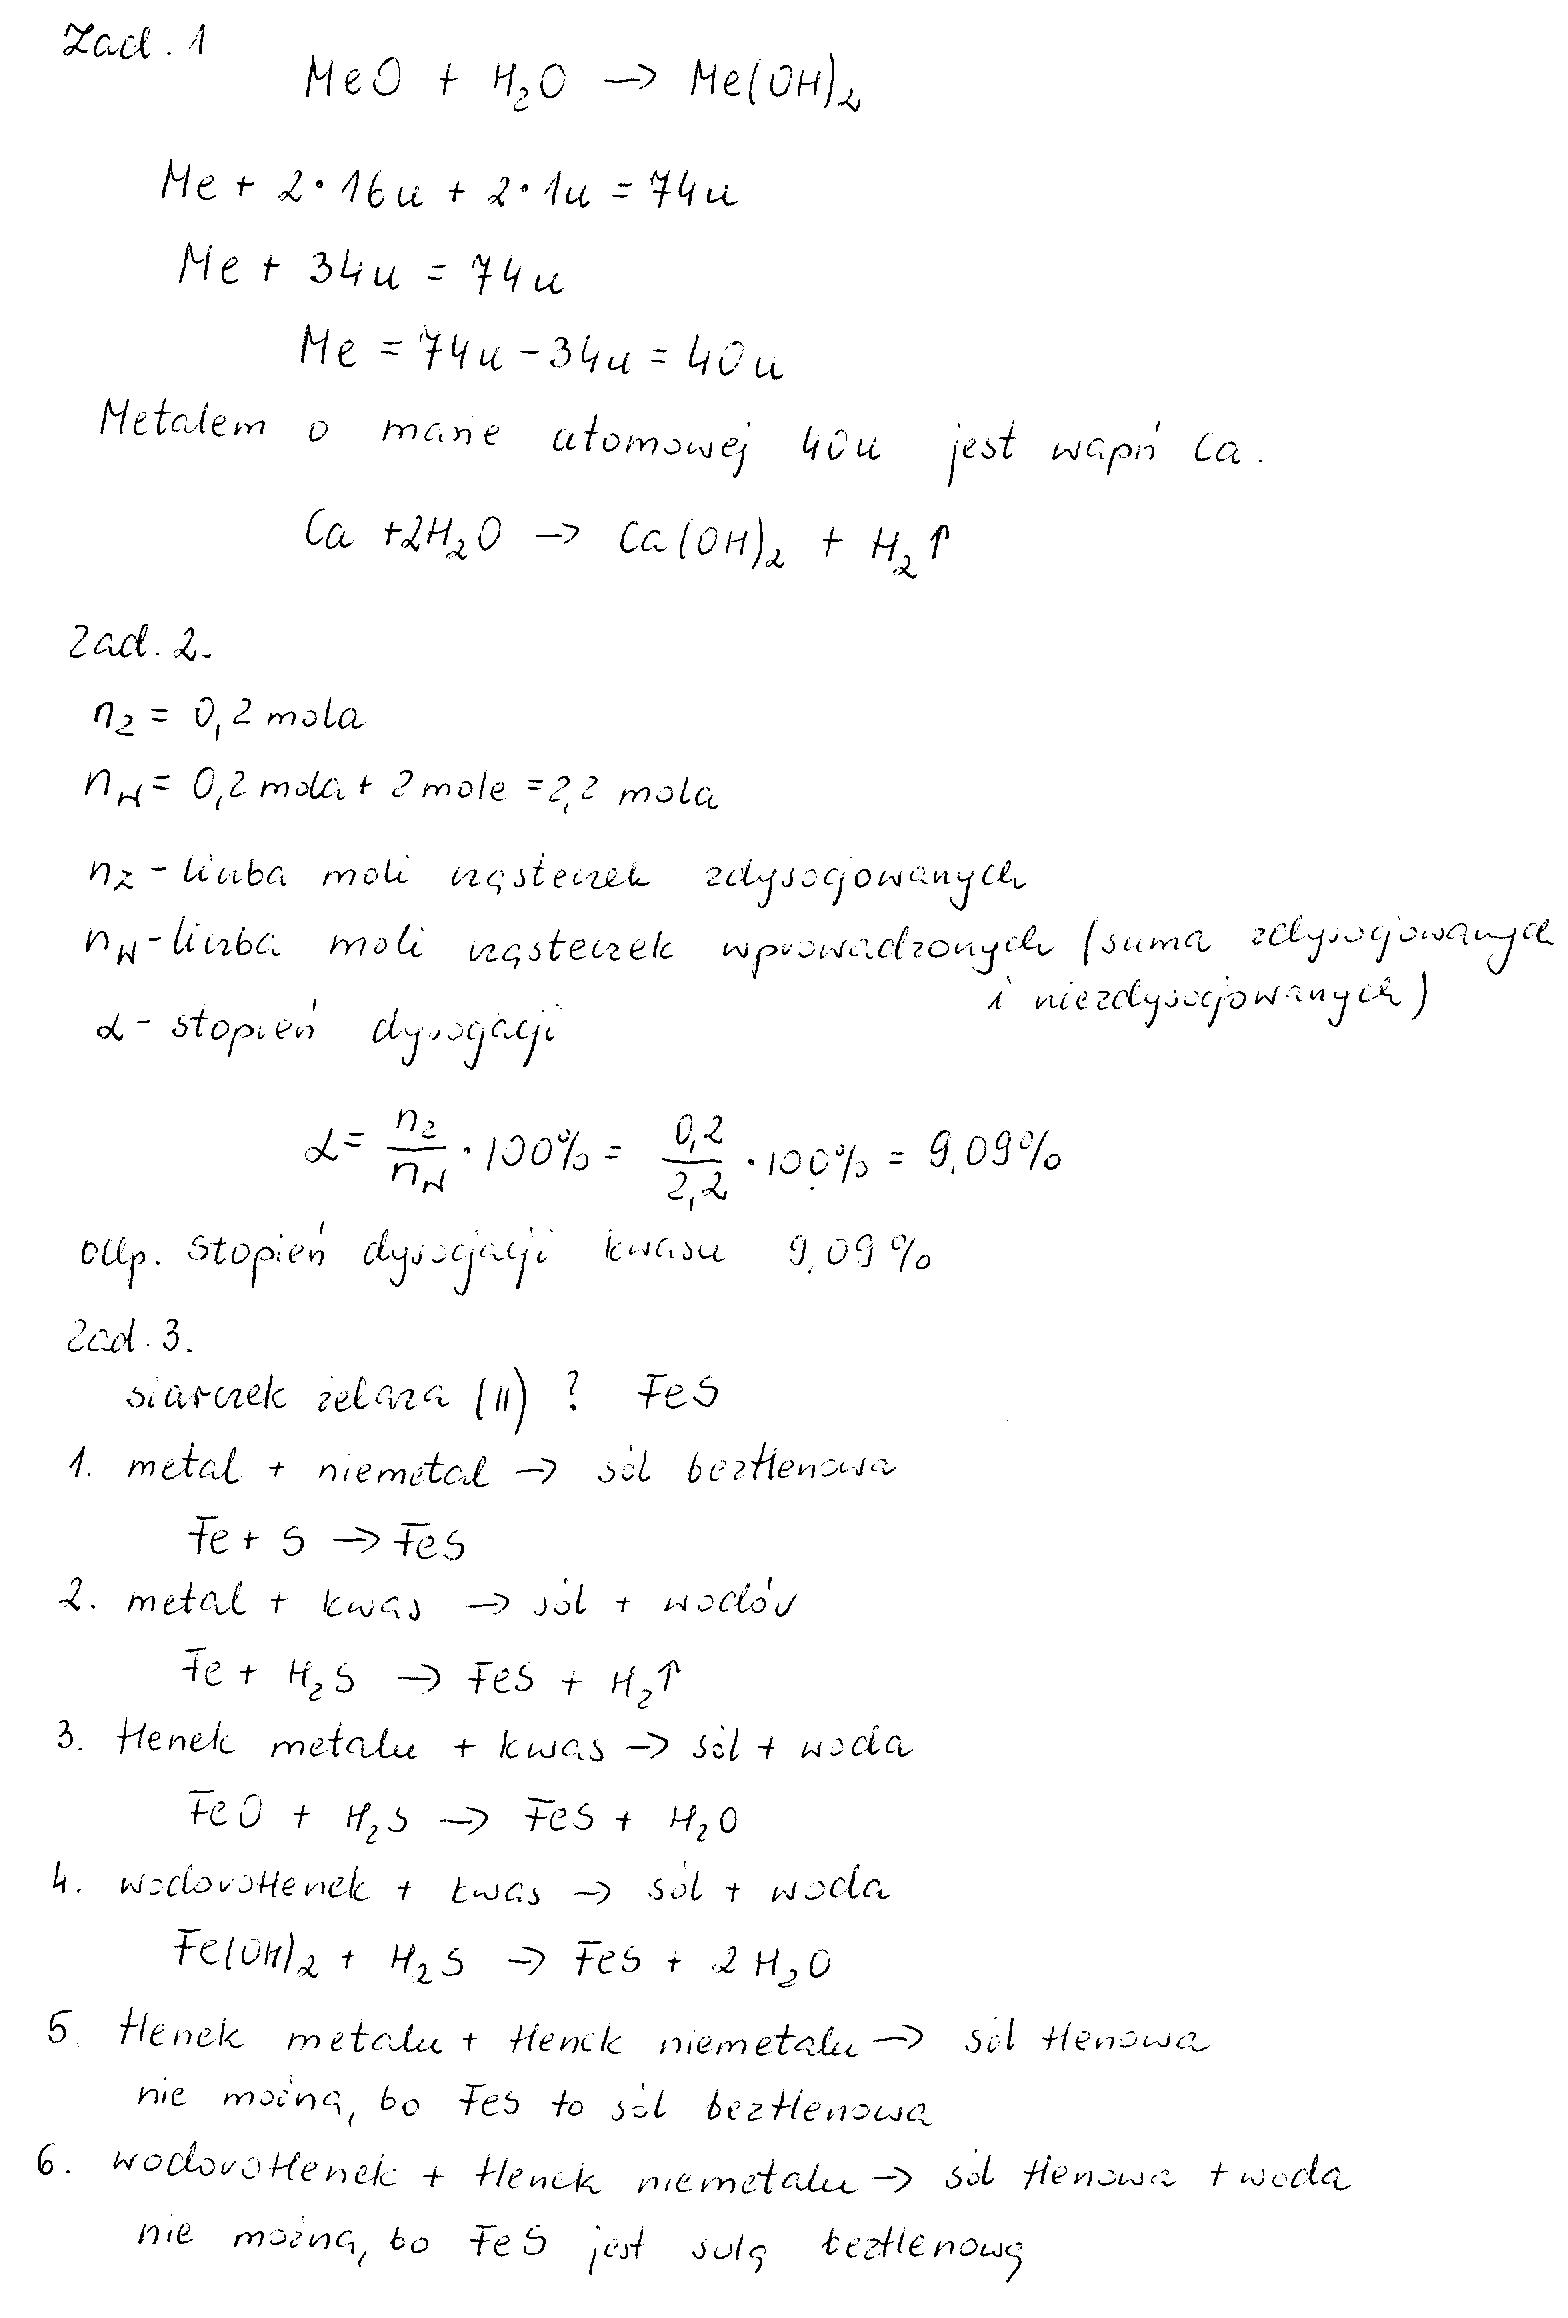 Zad. 1
MeO + H₂O → Me(OH)₂
Me + 2·16u + 2·1u = 74u
Me + 34u = 74u
Me = 74u - 34u = 40u
Metalem o masie atomowej 40u jest wapń Ca.
Ca +2H₂O → Ca(OH)₂ + H₂↑
Zad. 2.
n_z = 0,2 mola
n_w = 0,2 mola + 2 mole = 2,2 mola
n_z - liczba moli cząsteczek zdysocjowanych
n_w - liczba moli cząsteczek wprowadzonych (suma zdysocjowanych
i niezdysocjowanych)
α - stopień dysocjacji
α = n_z/n_w · 100% = 0,2/2,2 · 100% = 9,09%
odp. Stopień dysocjacji kwasu 9,09%
Zad. 3.
siarczek żelaza (II) ? FeS
1. metal + niemetal → sól beztlenowa
Fe + S → FeS
2. metal + kwas → sól + wodór
Fe + H₂S → FeS + H₂↑
3. tlenek metalu + kwas → sól + woda
FeO + H₂S → FeS + H₂O
4. wodorotlenek + kwas → sól + woda
Fe(OH)₂ + H₂S → FeS + 2H₂O
5. tlenek metalu + tlenek niemetalu → sól tlenowa
nie można, bo FeS to sól beztlenowa
6. wodorotlenek + tlenek niemetalu → sól tlenowa + woda
nie można, bo FeS jest solą beztlenową